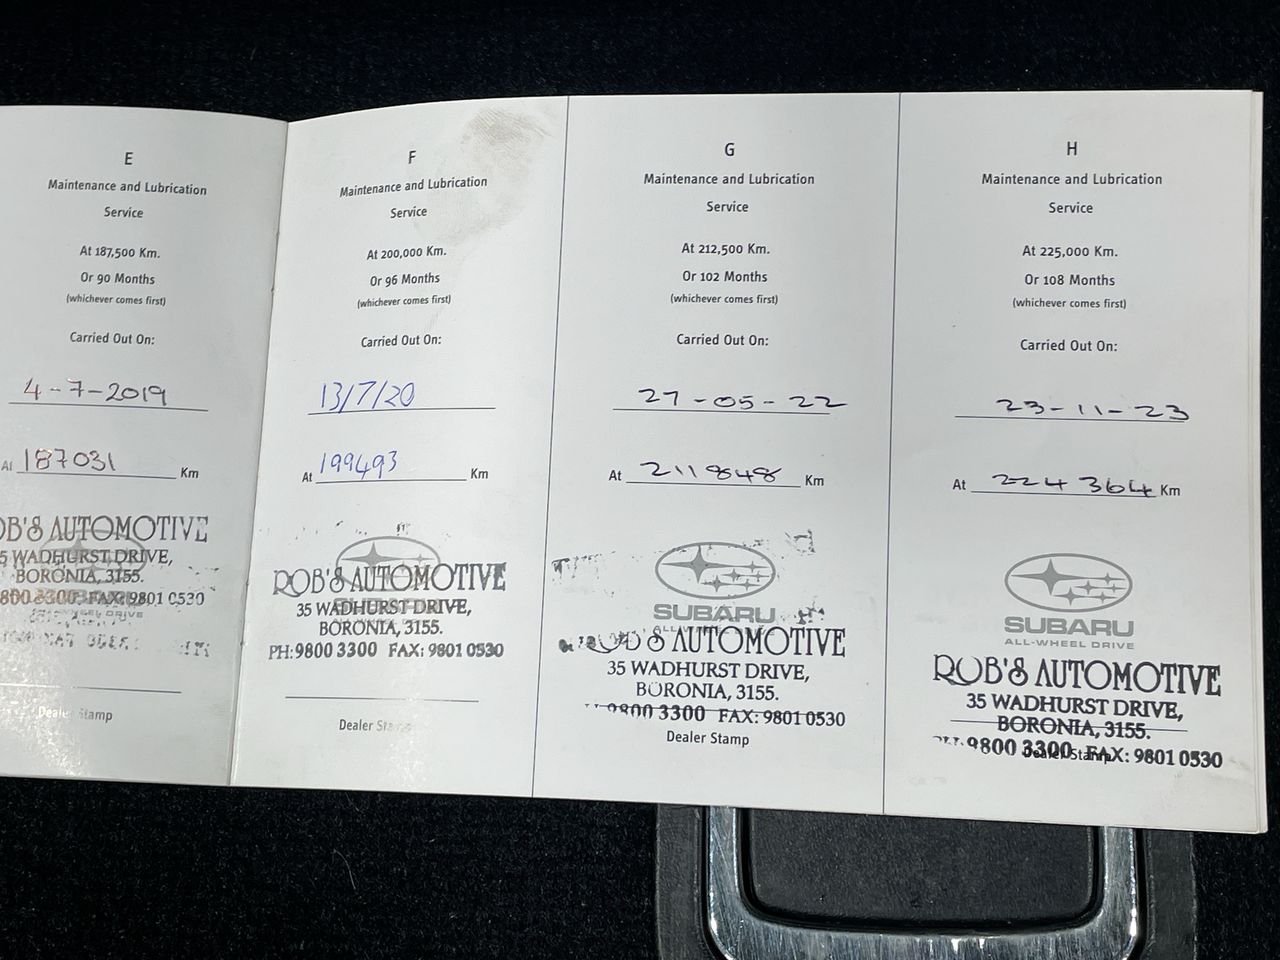 E
Maintenance and Lubrication
Service
At 187,500 Km.
Or 90 Months
(whichever comes first)
Carried Out On:
4-7-2019
At 187031 Km
OB'S AUTOMOTIVE
5 WADHURST DRIVE,
BORONIA, 3155.
800 3300 FAX: 9801 0530
Dealer Stamp
F
Maintenance and Lubrication
Service
At 200,000 Km.
Or 96 Months
(whichever comes first)
Carried Out On:
13/7/20
At 199493 Km
ROB'S AUTOMOTIVE
35 WADHURST DRIVE,
BORONIA, 3155.
PH: 9800 3300 FAX: 9801 0530
Dealer Stamp
G
Maintenance and Lubrication
Service
At 212,500 Km.
Or 102 Months
(whichever comes first)
Carried Out On:
27-05-22
At 211848 Km
SUBARU
ROB'S AUTOMOTIVE
35 WADHURST DRIVE,
BORONIA, 3155.
9800 3300 FAX: 9801 0530
Dealer Stamp
H
Maintenance and Lubrication
Service
At 225,000 Km.
Or 108 Months
(whichever comes first)
Carried Out On:
23-11-23
At 224364 Km
SUBARU
ALL-WHEEL DRIVE
ROB'S AUTOMOTIVE
35 WADHURST DRIVE,
BORONIA, 3155.
9800 3300 FAX: 9801 0530
Dealer Stamp